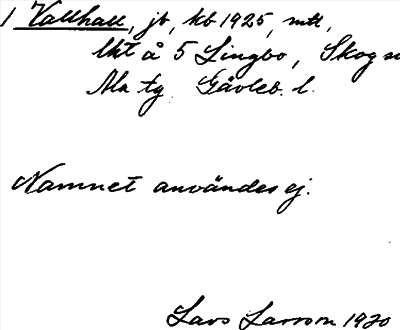 1 Vallhall, jb, kb 1925, mtl,
lht å 5 Lingbo, Skog sn
Ala tg. Gävleb. l.
Namnet användes ej.
Lars Larsson 1920